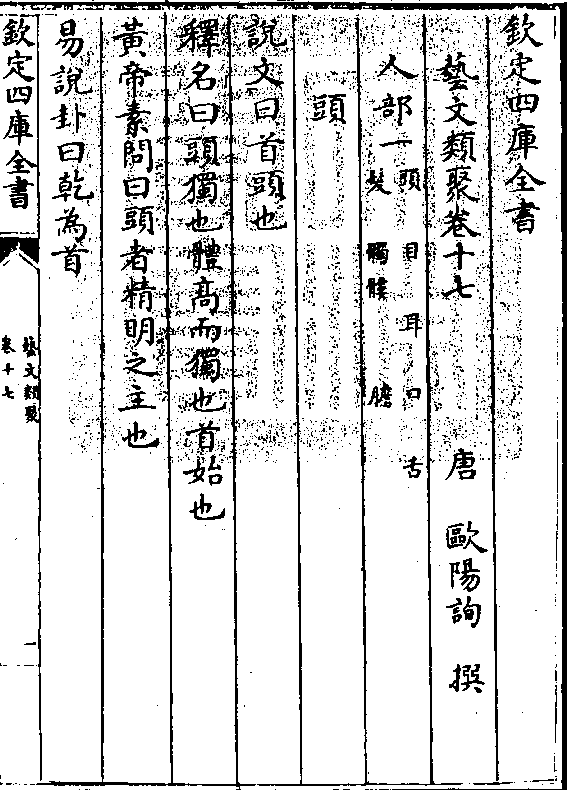 欽定四庫全書
藝文類聚卷十七 唐 歐陽詢 撰
人部一 頭 目 耳 口 舌
髮 髑髏 膽
頭
說文曰首頭也
釋名曰頭獨也體髙而獨也首始也
黃帝素問曰頭者精明之主也
易說卦曰乾為首
欽定四庫全書
藝文類聚
卷十七
一